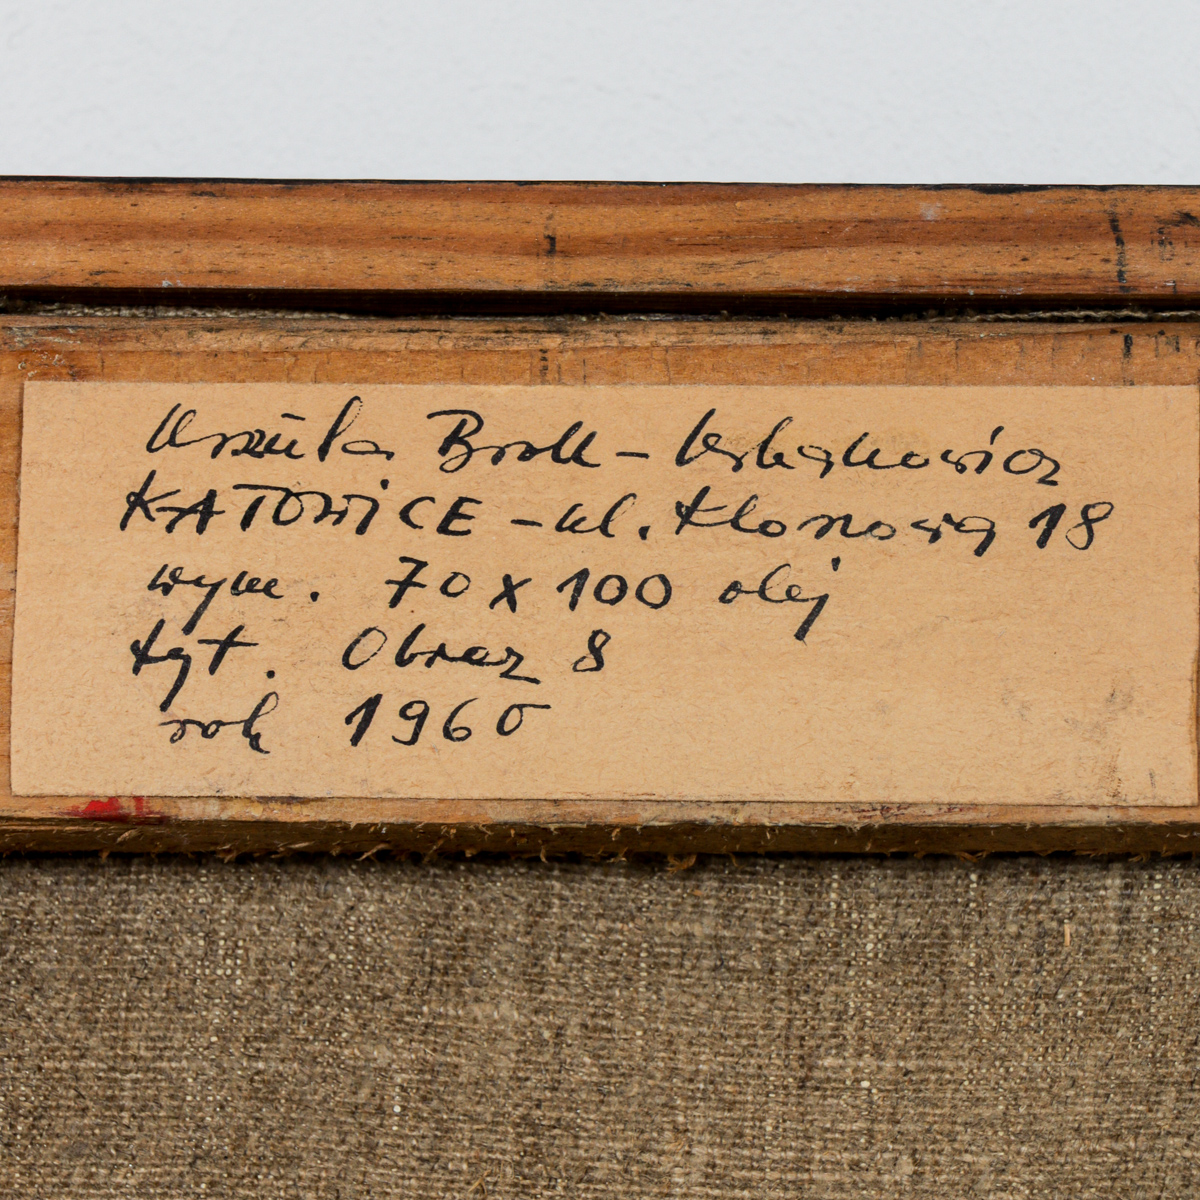 Urszula Broll - Urbanowicz
KATOWICE - ul. Klonowa 18
wym. 70 x 100 olej
tyt. Obraz 8
rok 1960